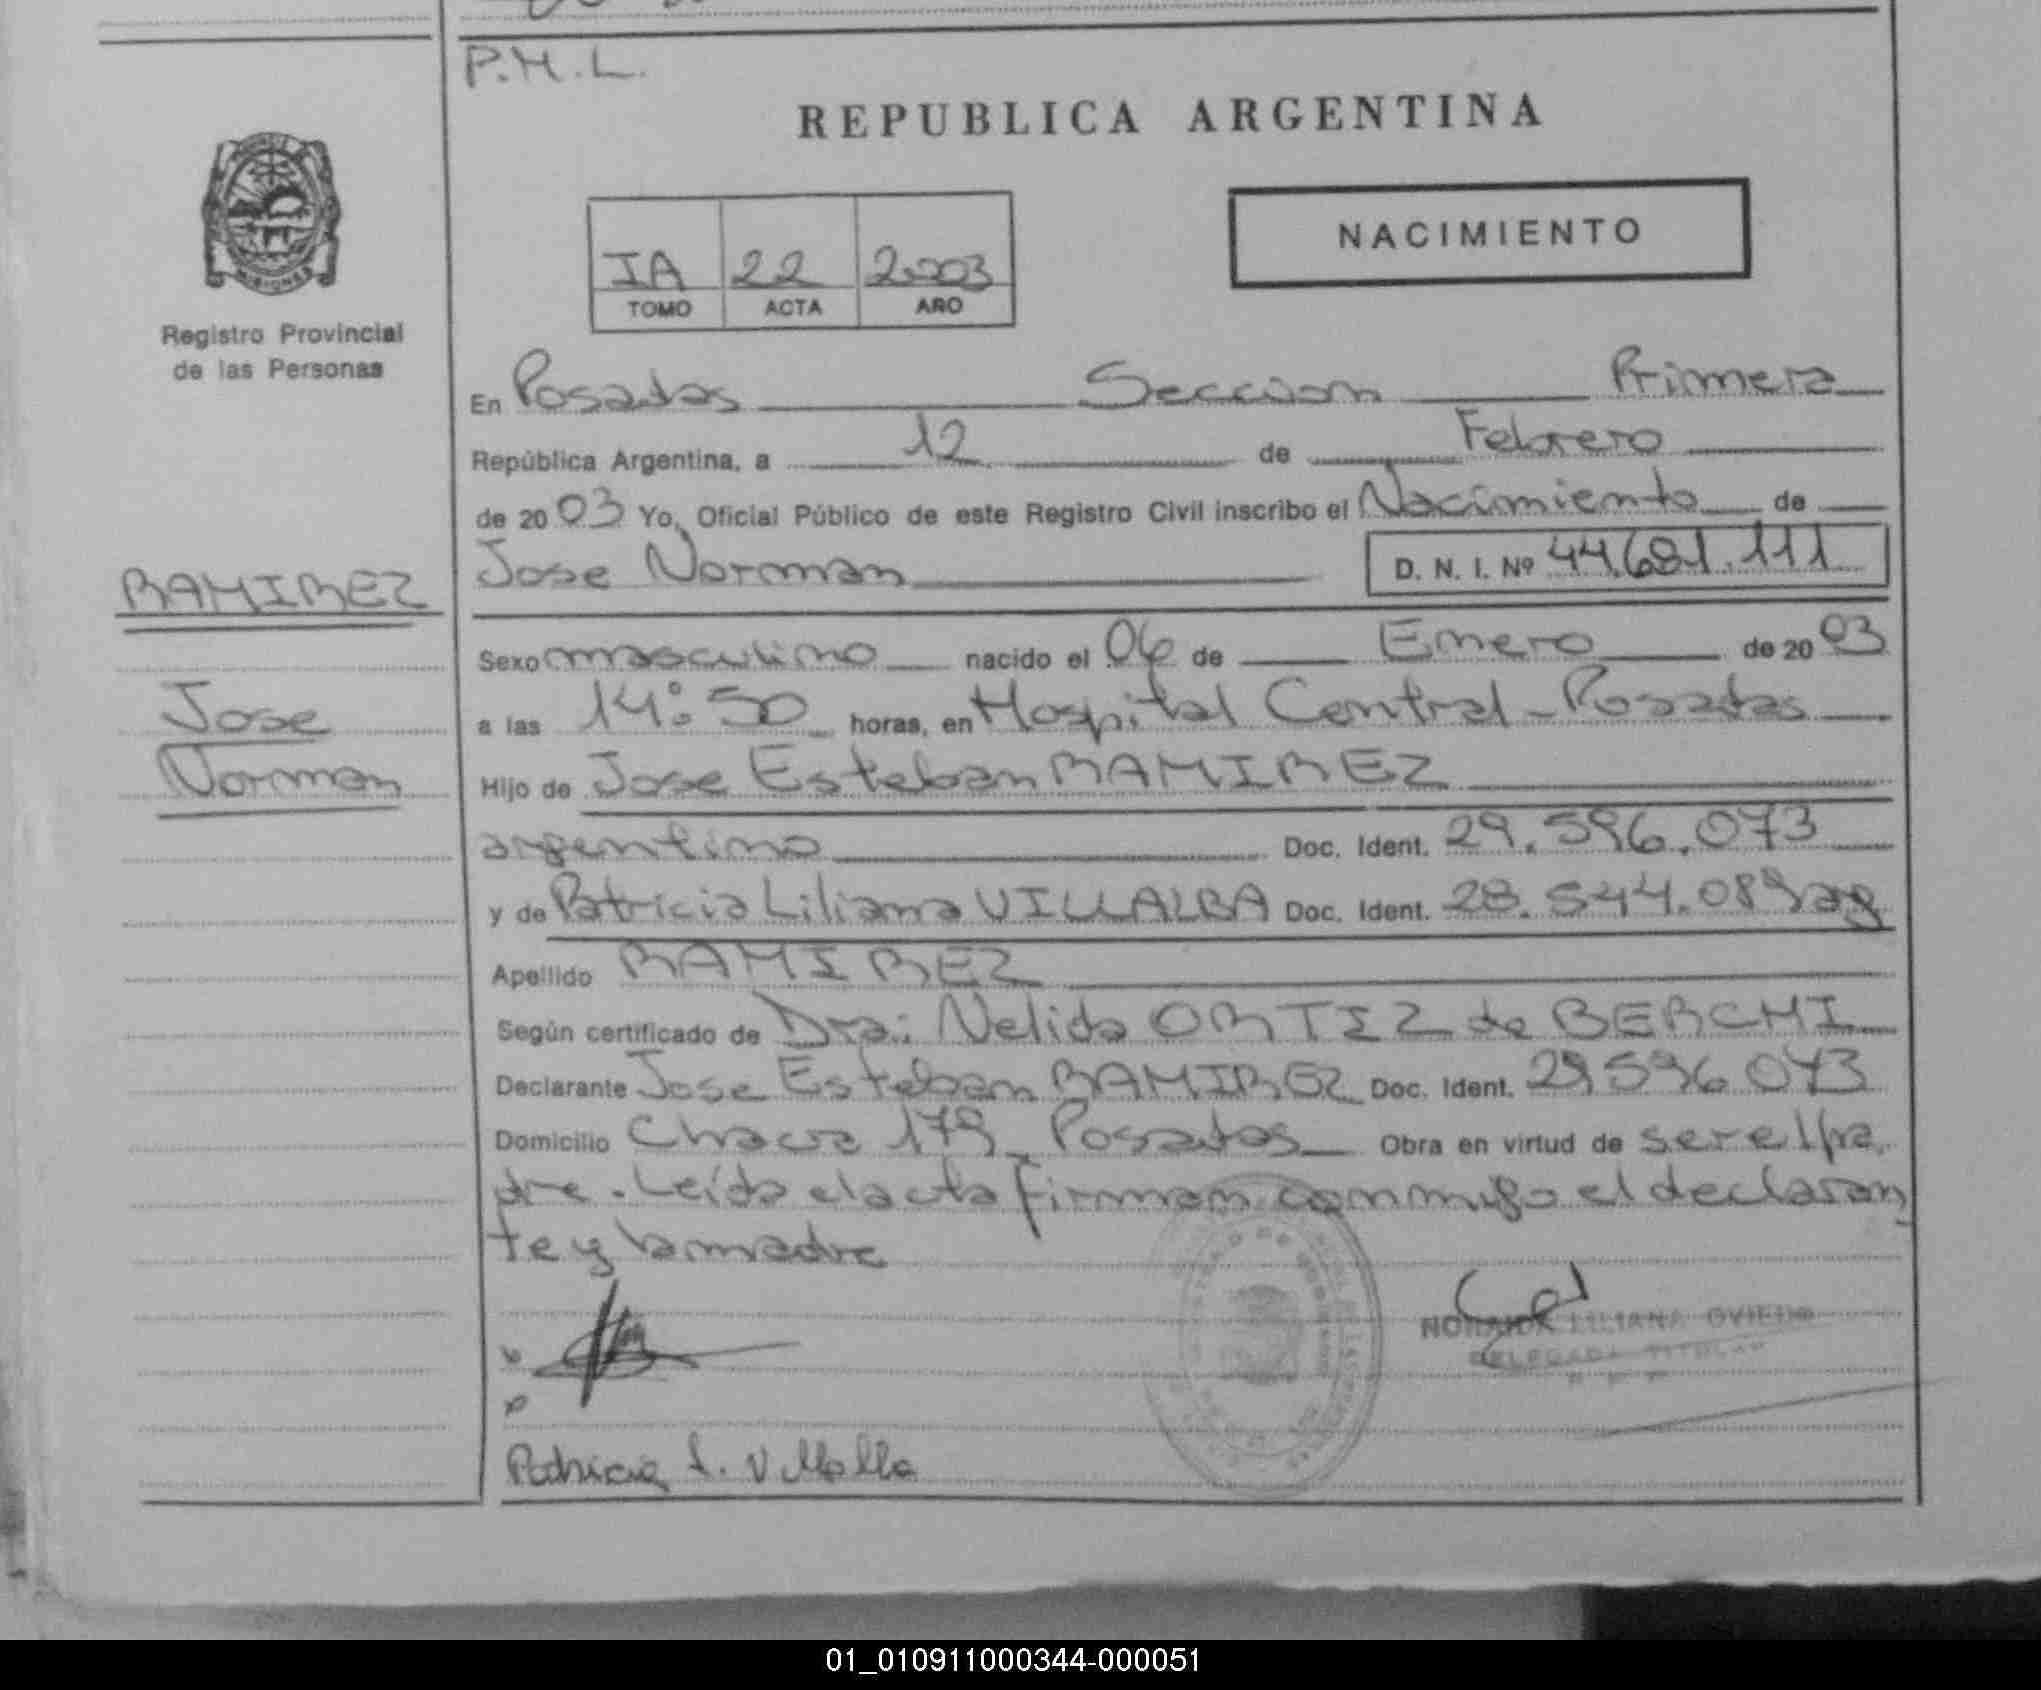 P.M.L.
REPUBLICA ARGENTINA
NACIMIENTO
IA 22 2003
TOMO ACTA AÑO
MISIONES
Registro Provincial
de las Personas
En Posadas Seccion Primera
República Argentina, a 12 de Febrero
de 2003 Yo, Oficial Público de este Registro Civil inscribo el Nacimiento de
Jose Norman D. N. I. Nº 44.681.111
RAMIREZ
Jose
Norman
Sexo masculino nacido el 06 de Enero de 2003
a las 14:50 horas, en Hospital Central - Posadas
Hijo de Jose Esteban RAMIREZ
argentino Doc. Ident. 29.596.073
y de Patricia Liliana VILLALBA Doc. Ident. 28.544.089 arg
Apellido RAMIREZ
Según certificado de Dra: Nelida ORTIZ de BERCHI
Declarante Jose Esteban RAMIREZ Doc. Ident. 29.596.073
Domicilio Chacra 179 Posadas Obra en virtud de ser el pa
dre. Leída el acta firman conmigo el declaran
te y la madre
LILIANA OVIEDO
DELEGADA TITULAR
Patricia L. Villalba
01_010911000344-000051